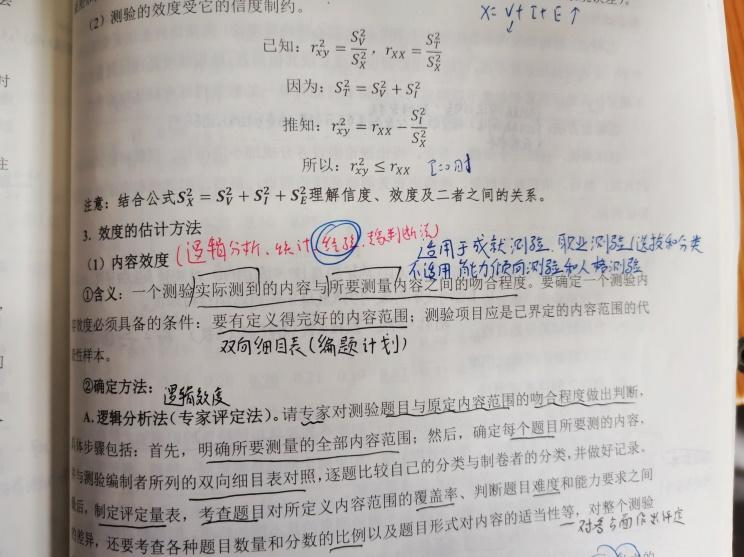 （2）测验的效度受它的信度制约。
X= V+I+E↑
已知：r²xy = S²V/S²X，rXX = S²T/S²X
因为：S²T = S²V + S²I
推知：r²xy = rXX − S²I/S²X
所以：r²xy ≤ rXX I=0时
注意：结合公式S²X = S²V + S²I + S²E理解信度、效度及二者之间的关系。
3. 效度的估计方法
（1）内容效度 (逻辑分析、统计、经验 判断法)
适用于成就测验、职业测验(选拔和分类
不适用 能力倾向测验和人格测验
①含义：一个测验实际测到的内容与所要测量内容之间的吻合程度。要确定一个测验内
容效度必须具备的条件：要有定义得完好的内容范围；测验项目应是已界定的内容范围的代
表性样本。 双向细目表(编题计划)
②确定方法：逻辑效度
A. 逻辑分析法（专家评定法）。请专家对测验题目与原定内容范围的吻合程度做出判断，
体步骤包括：首先，明确所要测量的全部内容范围；然后，确定每个题目所要测的内容，
与测验编制者所列的双向细目表对照，逐题比较自己的分类与制卷者的分类，并做好记录。
最后，制定评定量表，考查题目对所定义内容范围的覆盖率、判断题目难度和能力要求之间
的差异，还要考查各种题目数量和分数的比例以及题目形式对内容的适当性等，对整个测验